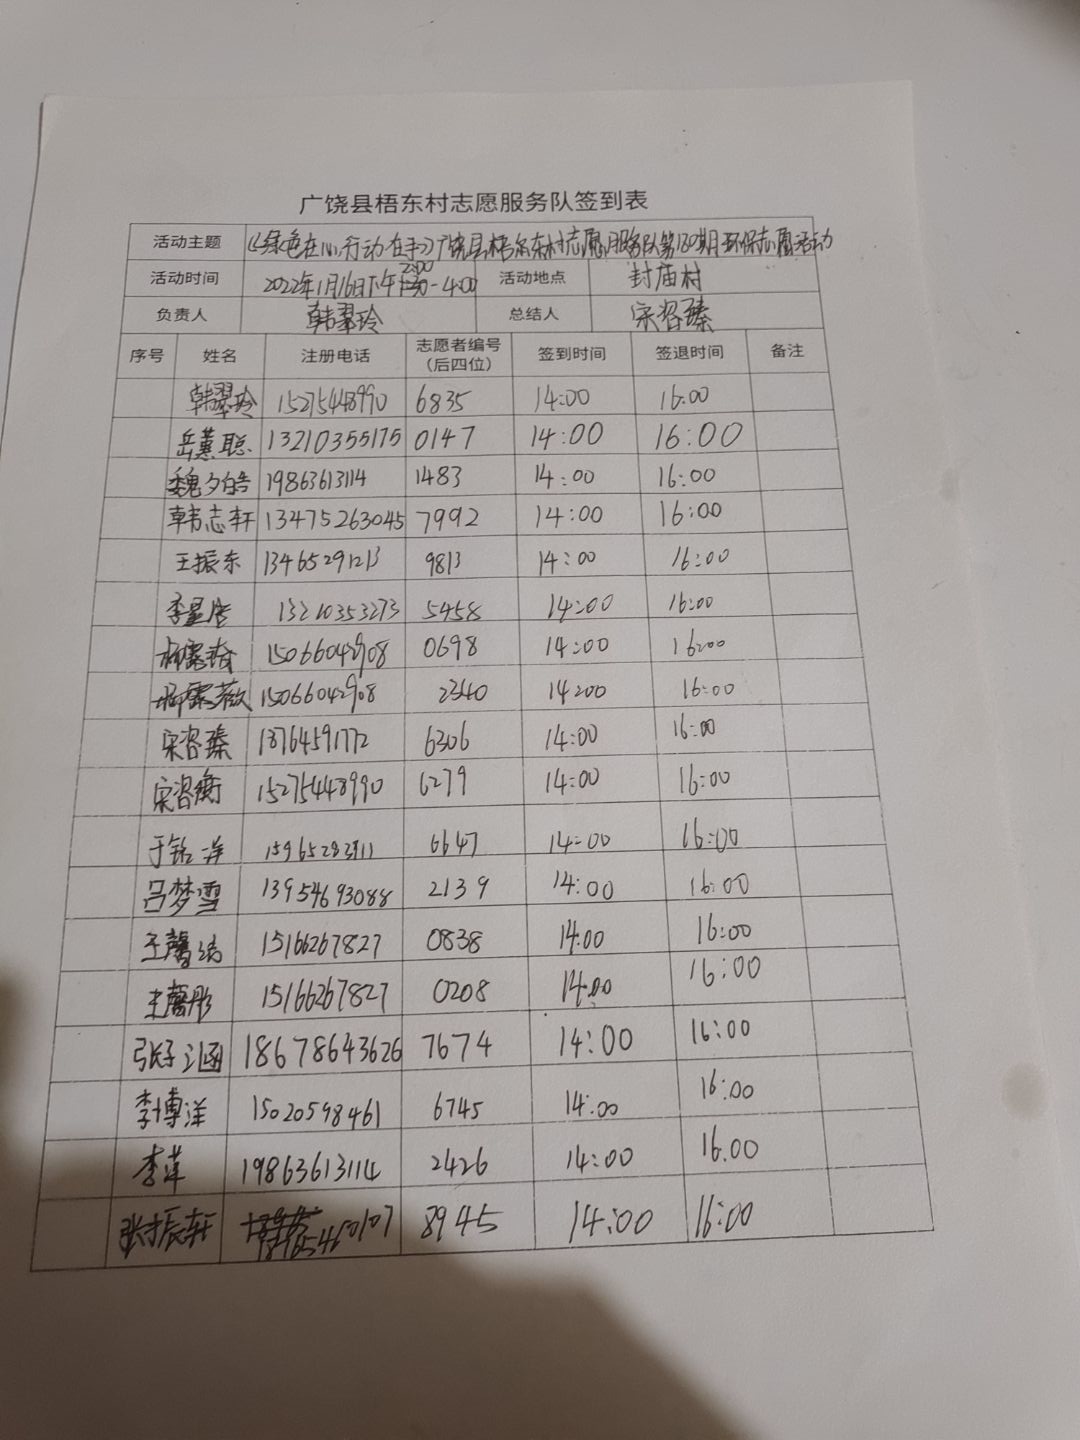 广饶县梧东村志愿服务队签到表
活动主题 《绿色在心,行动在手》广饶县梧东村志愿服务队第180期环保志愿活动
活动时间 2022年1月16日下午2:00-4:00 活动地点 封庙村
负责人 韩翠玲 总结人 宋容臻
序号 姓名 注册电话 志愿者编号(后四位) 签到时间 签退时间 备注
韩翠玲 15275448990 6835 14:00 16:00
岳蕙聪 13210355175 0147 14:00 16:00
魏夕皓 19863613114 1483 14:00 16:00
韩志轩 13475263045 7992 14:00 16:00
王振东 13465291213 9813 14:00 16:00
李星 13210353273 5458 14:00 16:00
15066042908 0698 14:00 16:00
15066042908 2340 14:00 16:00
宋容臻 18764591772 6306 14:00 16:00
宋容衡 15275448990 6279 14:00 16:00
于铭洋 6647 14:00 16:00
吕梦雪 13954693088 2139 14:00 16:00
王馨 15166267827 0838 14:00 16:00
王馨彤 15166267827 0208 14:00 16:00
张子涵 18678643626 7674 14:00 16:00
李博洋 15020598461 6745 14:00 16:00
李萍 19863613114 2426 14:00 16:00
张振轩 8945 14:00 16:00